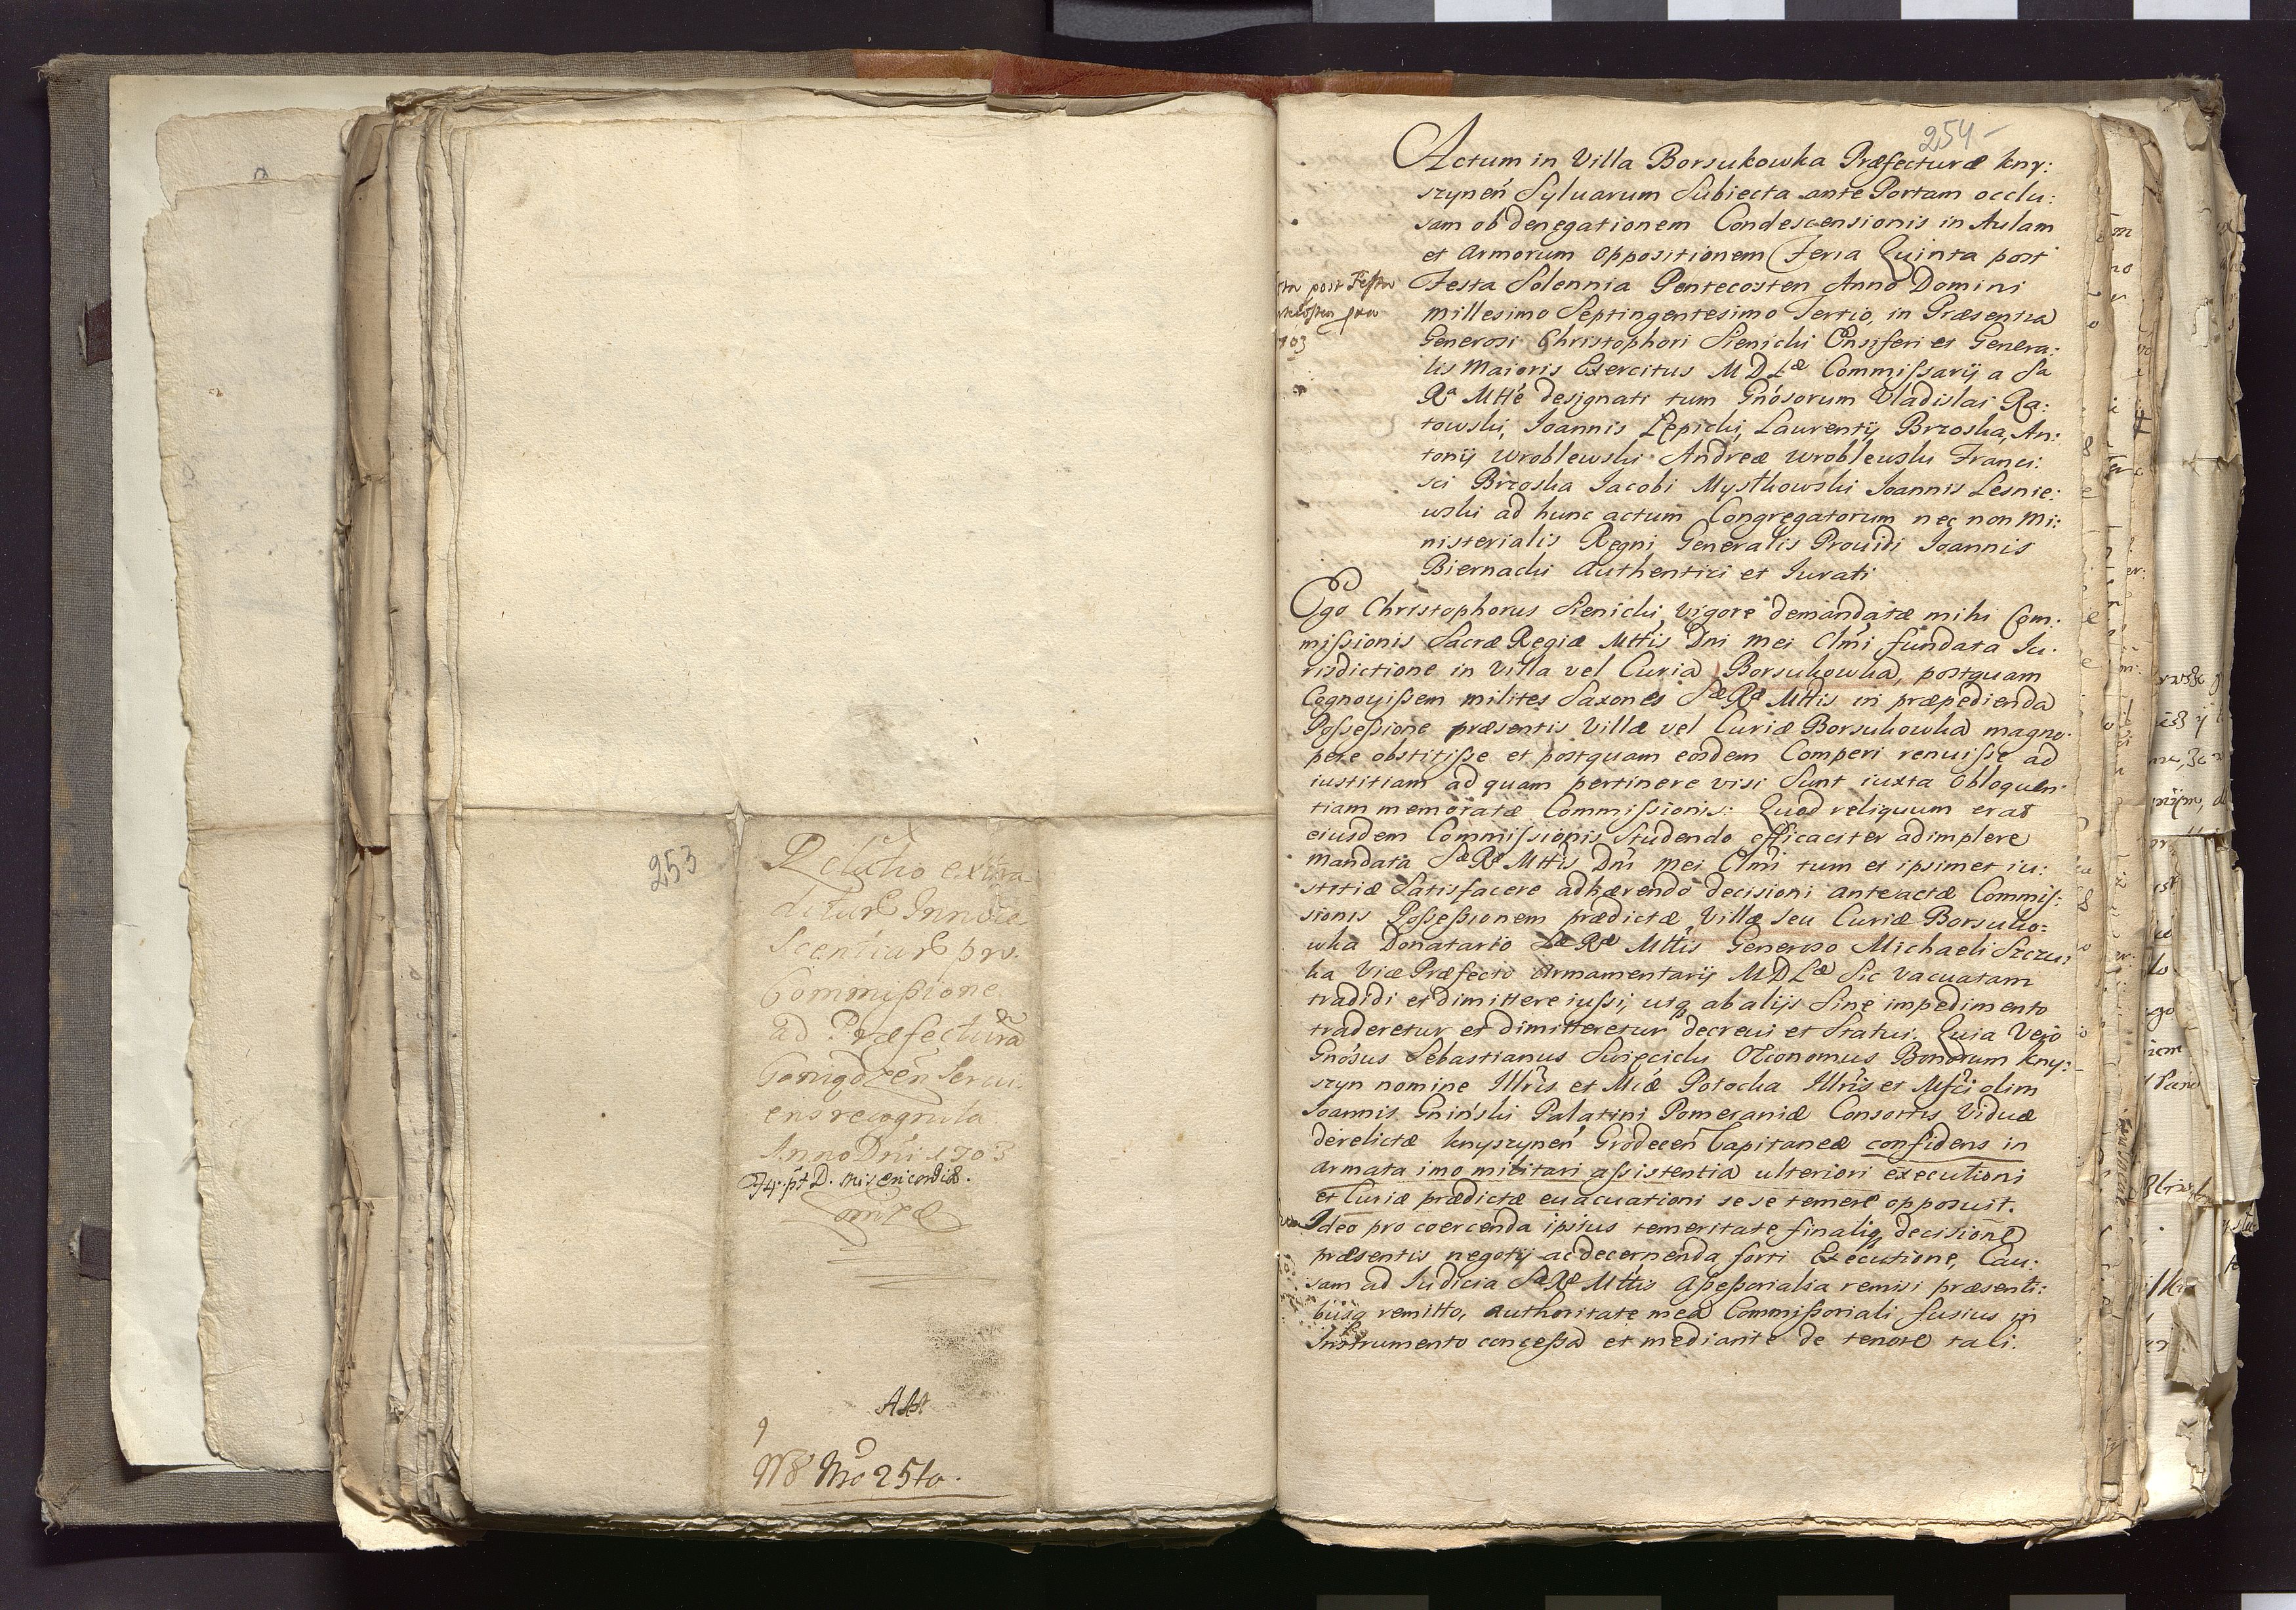 253
Relatio extra
diturae Innote
scentiarū pro
Commissione
ad Præfecturā
Goniądzeń Servi
ens recognita.
Anno Dni 1703
F4. pt D. Misericordiæ.
Nro 25to.
254
Actum in Villa Borsukowka Præfecturæ kny:
szyneń Syluarum Subiecta ante Portam occlu:
sam ob denegationem Condescensionis in Aulam
et Armorum Oppositionem Feria Quinta post
Festa Solennia Pentecosten Anno Domini
post Festa
millesimo Septingentesimo Tertio, in Præsentia
703
Generosi Christophori Sienicki Ensiferi et Genera:
lis Maioris Exercitus MDLæ Commißarij a Sa
Ra Mtte designati tum Gnosorum Vladislai Ra:
towski, Joannis Łępicki, Laurentij Brzoska, An:
tonij Wroblewski Andreæ Wroblewski Franci:
sci Brzoska Jacobi Mystkowski Joannis Lesnie:
wski ad hunc actum Congregatorum nec non Mi:
nisterialis Regni Generalis Prouidi Joannis
Biernacki Authentici et Jurati
Ego Christophorus Sienicki, vigore demandatæ mihi Com:
mißionis Sacræ Regiæ Mttis Dni mei Clmi fundata Ju:
risdictione in Villa vel Curia Borsukowka, postquam
Cognouißem milites Saxones Sæ Ræ Mttis in præpedienda
Poßeßione præsentis Villæ vel Curiæ Borsukowka magno:
pere obstitiße et postquam eosdem Comperi renuiße ad
iustitiam ad quam pertinere visi Sunt iuxta Obloquen:
tiam memoratæ Commißionis: Quod reliquum erat
eiusdem Commißionis Studendo efficaciter adimplere
mandata Sæ Ræ Mttis Dni mei Clmi tum et ipsimet iu:
stitiæ Satisfacere adhærendo decisioni anteactæ Commis:
sionis Poßeßionem prædictæ Villæ seu Curiæ Borsuko:
wka Donatario Sæ Ræ Mttis Generoso Michaeli Szczu:
ka Vice Præfecto Armamentarij MDLæ Sic vacuatam
tradidi et dimittere iußi, utq ab alijs Sine impedimento
traderetur et dimitteretur decreui et Statui. Quia Vero
Gnosus Sebastianus Swięcicki Œconomus Bonorum Kny:
szyn nomine Illris et Mcæ Potocka Illris et Mfci olim
Joannis Gniński Palatini Pomeraniæ Consortis Viduæ
derelictæ knyszyneń Grodeceń Capitaneæ confidens in
armata imo militari aßistentia ulteriori executioni
et Curiæ prædictæ euacuationi se se temere opposuit.
Ideo pro coercenda ipsius temeritate finaliq decisione
præsentis negotij ac decernenda forti Executione, Cau:
sam ad Iudicia Sæ Ræ Mttis Aßeßorialia remisi præsenti:
busq remitto, authoritate mea Commißoriali fusius in
Instrumento conceßa et mediante de tenore tali.